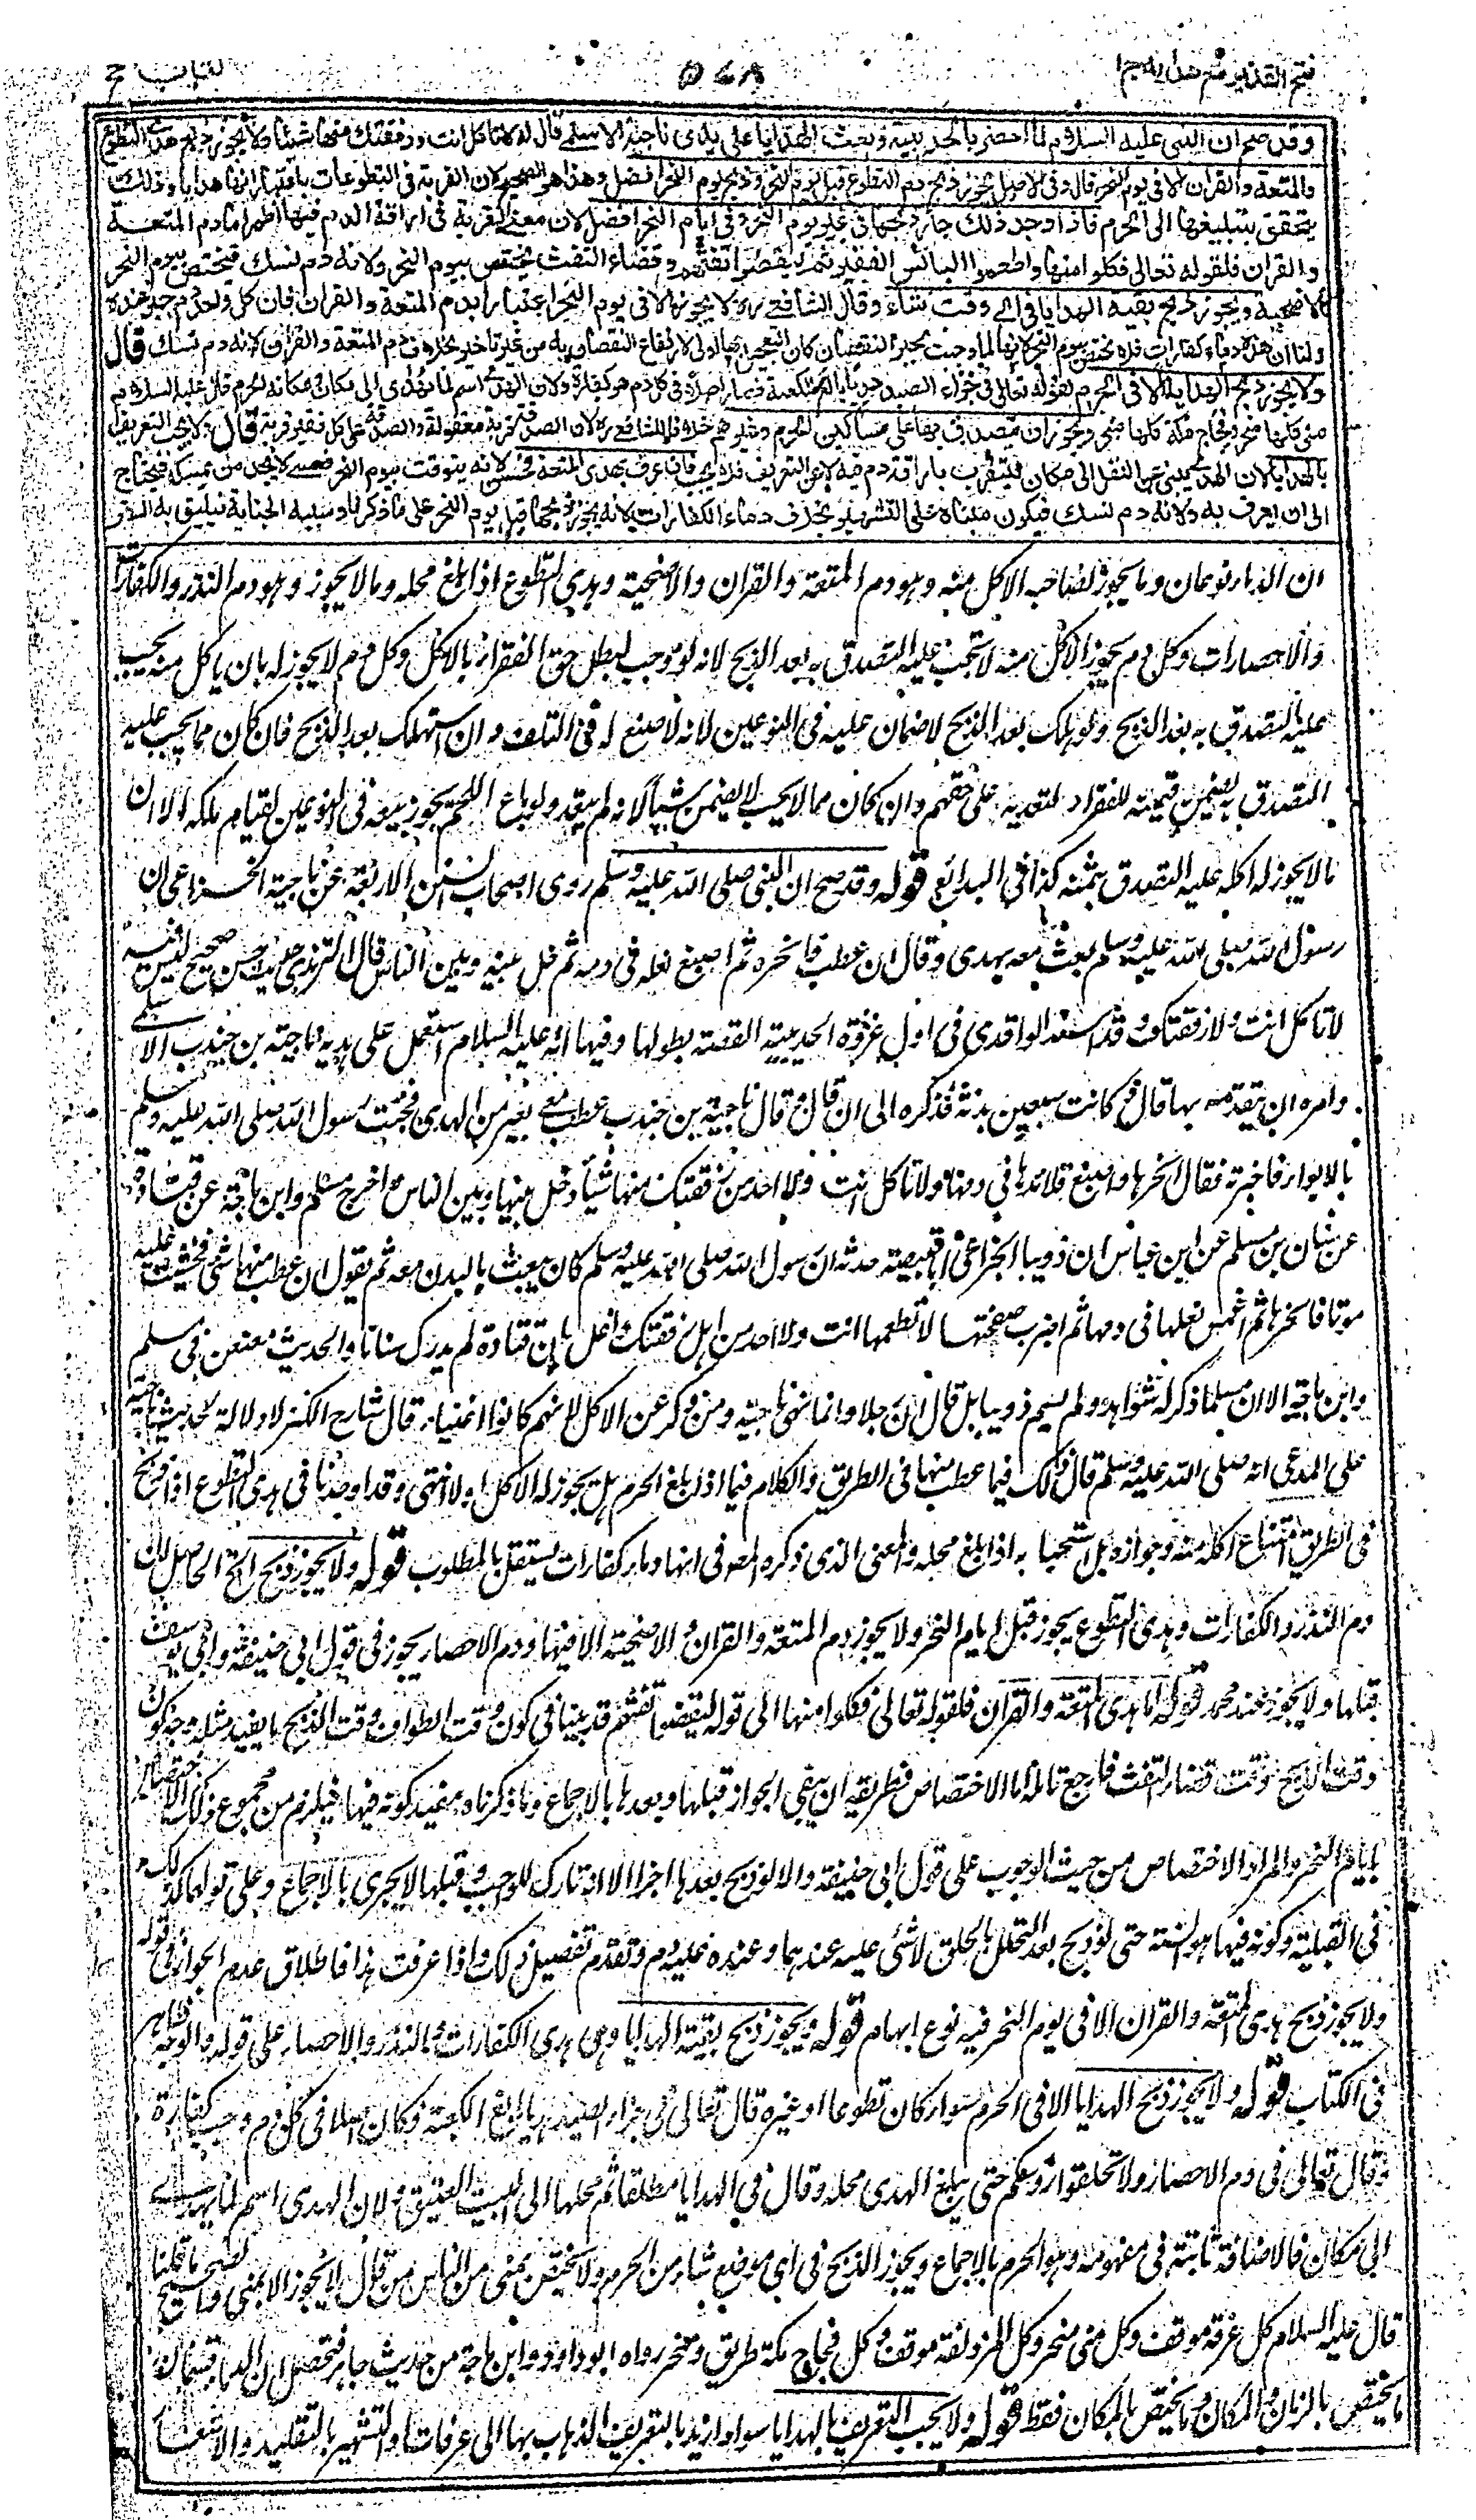 فتح القدير شرح هدايه جلد ١
٥٤٨
كتاب الحج
وقد صح ان النبى عليه السلام لما احصر بالحديبية وبعث الهدايا على يدى ناجية الاسلمى قال له لا تاكل انت ورفقتك منها شيئا ولا يجوز ذبح هدى التطوع
والمتعة والقران الا فى يوم النحر قال وفى الاصل يجوز ذبح دم التطوع قبل يوم النحر وذبحه يوم النحر افضل وهذا هو الصحيح لان القربة فى التطوعات باعتبار انها هدايا وذلك
يتحقق بتبليغها الى الحرم فاذا وجد ذلك جاز ذبحها فى غير يوم النحر وفى ايام النحر افضل لان معنى القربة فى اراقة الدم فيها اظهر اما دم المتعة
والقران فلقوله تعالى فكلوا منها واطعموا البائس الفقير ثم ليقضوا تفثهم وقضاء التفث يختص بيوم النحر ولانه دم نسك فيختص بيوم النحر
كالاضحية ويجوز ذبح بقية الهدايا فى اى وقت شاء وقال الشافعى ره لا يجوز الا فى يوم النحر اعتبارا بدم المتعة والقران فان كل واحد دم جبر عنده
ولنا ان هذه دماء كفارات فلا يختص بيوم النحر لانها لما وجبت لجبر النقصان كان التعجيل بها اولى لارتفاع النقصان به من غير تاخير بخلاف دم المتعة والقران لانه دم نسك قال
ولا يجوز ذبح الهدايا الا فى الحرم لقوله تعالى فى جزاء الصيد هديا بالغ الكعبة فصار اصلا فى كل دم هو كفارة ولان الهدى اسم لما يهدى الى مكان ومكانه الحرم قال عليه السلام
منى كلها منحر وفجاج مكة كلها منحر ويجوز ان يتصدق بها على مساكين الحرم وغيرهم خلافا للشافعى ره لان الصدقة قربة معقولة والصدقة على كل فقير قربة قال ولا يجب التعريف
بالهدايا لان الهدى ينبئ عن النقل الى مكان ليتقرب باراقة دمه فيه لا عن التعريف فلا يجب فان عرف بهدى المتعة فحسن لانه يتوقت بيوم النحر فعسى لا يجد من يمسكه فيحتاج
الى ان يعرف به ولانه دم نسك فيكون مبناه على التشهير بخلاف دماء الكفارات لانه يجوز ذبحها قبل يوم النحر على ما ذكرنا وسببه الجناية فيليق به الستر
ان الدماء نوعان ما يجوز لصاحبه الاكل منه وهو دم المتعة والقران والاضحية وهدى التطوع اذا بلغ محله وما لا يجوز وهو دم النذر والكفارات
والاحصارات وكل دم يجوز الاكل منه لا تجب عليه التصدق به بعد الذبح لانه لو وجب لبطل حق الفقراء بالاكل وكل دم لا يجوز له بان ياكل منه يجب
عليه التصدق به بعد الذبح ولو هلك بعد الذبح لا ضمان عليه فى النوعين لانه لا صنع له فى التلف وان استهلك بعد الذبح فان كان مما يجب عليه
التصدق به يضمن قيمته للفقراء لتعديه على حقهم وان كان مما لا يجب لا يضمن شيئا لانه لم يتعد ولو باع اللحم يجوز بيعه فى النوعين لقيام ملكه الا ان
ما لا يجوز له اكله عليه التصدق بثمنه كذا فى البدائع قوله وقد صح ان النبى صلى الله عليه وسلم روى اصحاب السنن الاربعة عن ناجية الخزاعى ان
رسول الله صلى الله عليه وسلم بعث معه بهدى وقال ان عطب فانحره ثم اصبغ نعله فى دمه ثم خل بينه وبين الناس قال الترمذى حديث حسن صحيح ليس فيه
لا تاكل انت ولا رفقتك وقد اسند الواقدى فى اول غزوة الحديبية القصة بطولها وفيها انه عليه السلام استعمل على هديه ناجية بن جندب الاسلمى
وامره ان يتقدمه بها قال وكانت سبعين بدنة فذكره الى ان قال قال ناجية بن جندب عطب معى بعير من الهدى فجئت رسول الله صلى الله عليه وسلم
بالابواء فاخبرته فقال انحرها واصبغ قلائدها فى دمها ولا تاكل انت ولا احد من رفقتك منها شيئا وخل بينها وبين الناس واخرج مسلم وابن ماجة عن قتادة
عن سنان بن مسلم عن ابن عباس ان ذويبا الخزاعى ابا قبيصة حدثه ان رسول الله صلى الله عليه وسلم كان يبعث بالبدن معه ثم يقول ان عطب منها شئ فخشيت عليه
موتا فانحرها ثم اغمس نعلها فى دمها ثم اضرب صفحتها لا تطعمها انت ولا احد من اهل رفقتك واعل بان قتادة لم يدرك سنانا والحديث معنعن فى مسلم
وابن ماجة الا ان مسلما ذكر له شواهد ولم يسم ذويبا بل قال ان رجلا وانما نهى ناجية ومن ذكر عن الاكل لانهم كانوا اغنياء قال شارح الكنز لا دلالة لحديث ناجية
على المدعى انه صلى الله عليه وسلم قال ذلك فيما عطب منها فى الطريق والكلام فيما اذا بلغ الحرم هل يجوز له الاكل اولا انتهى وقد اوجبنا فى هدى التطوع اذا ذبح
فى الطريق امتناع اكله منه وجوازه بل استحبابه اذا بلغ محله والمعنى الذى ذكره المص فى انها دماء كفارات يستقل بالمطلوب قوله ولا يجوز ذبح الخ الحاصل ان
دم النذر والكفارات وهدى التطوع يجوز قبل ايام النحر ولا يجوز دم المتعة والقران والاضحية الا فيها ودم الاحصار يجوز فى قول ابى حنيفة وابى يوسف
قبلها ولا يجوز عند محمد قوله اما هدى المتعة والقران فلقوله تعالى فكلوا منها الى قوله ليقضوا تفثهم قد بينا فى كون وقت الطواف وقت الذبح ما يفيد مثله وجه كون
وقت الذبح وقت قضاء التفث فارجع تامله اما الاختصاص فطريقه ان ينفى الجواز قبلها وبعدها بالاجماع وما ذكرناه يفيد كونه فيها فيلزم من مجموع ذلك الاختصاص
بايام النحر والمراد الاختصاص من حيث الوجوب على قول ابى حنيفة والا لو ذبح بعدها اجزا الا انه تارك للواجب وقبلها لا يجزى بالاجماع وعلى قولهما كذلك
فى القبلية وكونه فيها هو السنة حتى لو ذبح بعد التحلل بالحلق لا شئ عليه عندهما وعنده عليه دم وتقدم تفصيل ذلك واذا عرفت هذا فاطلاق عدم الجواز فى قوله
ولا يجوز ذبح هدى المتعة والقران الا فى يوم النحر فيه نوع ابهام قوله ويجوز ذبح بقية الهدايا وهى هدى الكفارات والنذر والاحصار على قوله والوجه ظاهر
فى الكتاب قوله ولا يجوز ذبح الهدايا الا فى الحرم سواء كان تطوعا او غيره قال تعالى فى جزاء الصيد هديا بالغ الكعبة فكان اصلا فى كل دم وجب كفارة
وقال تعالى فى دم الاحصار ولا تحلقوا رؤسكم حتى يبلغ الهدى محله وقال فى الهدايا مطلقا ثم محلها الى البيت العتيق ولان الهدى اسم لما يهدى
الى مكان فالاضافة ثابتة فى مفهومه وهو الحرم بالاجماع ويجوز الذبح فى اى موضع شاء من الحرم ولا يختص بمنى من الناس من قال لا يجوز الا بمنى والصحيح ما قلنا
قال عليه السلام كل عرفة موقف وكل منى منحر وكل المزدلفة موقف وكل فجاج مكة طريق ومنحر رواه ابو داود وابن ماجة من حديث جابر فتحصل ان الدماء قسمان
ما يختص بالزمان والمكان وما يختص بالمكان فقط قوله ولا يجب التعريف بالهدايا سواء اريد بالتعريف الذهاب بها الى عرفات او التشهير بالتقليد والاشعار